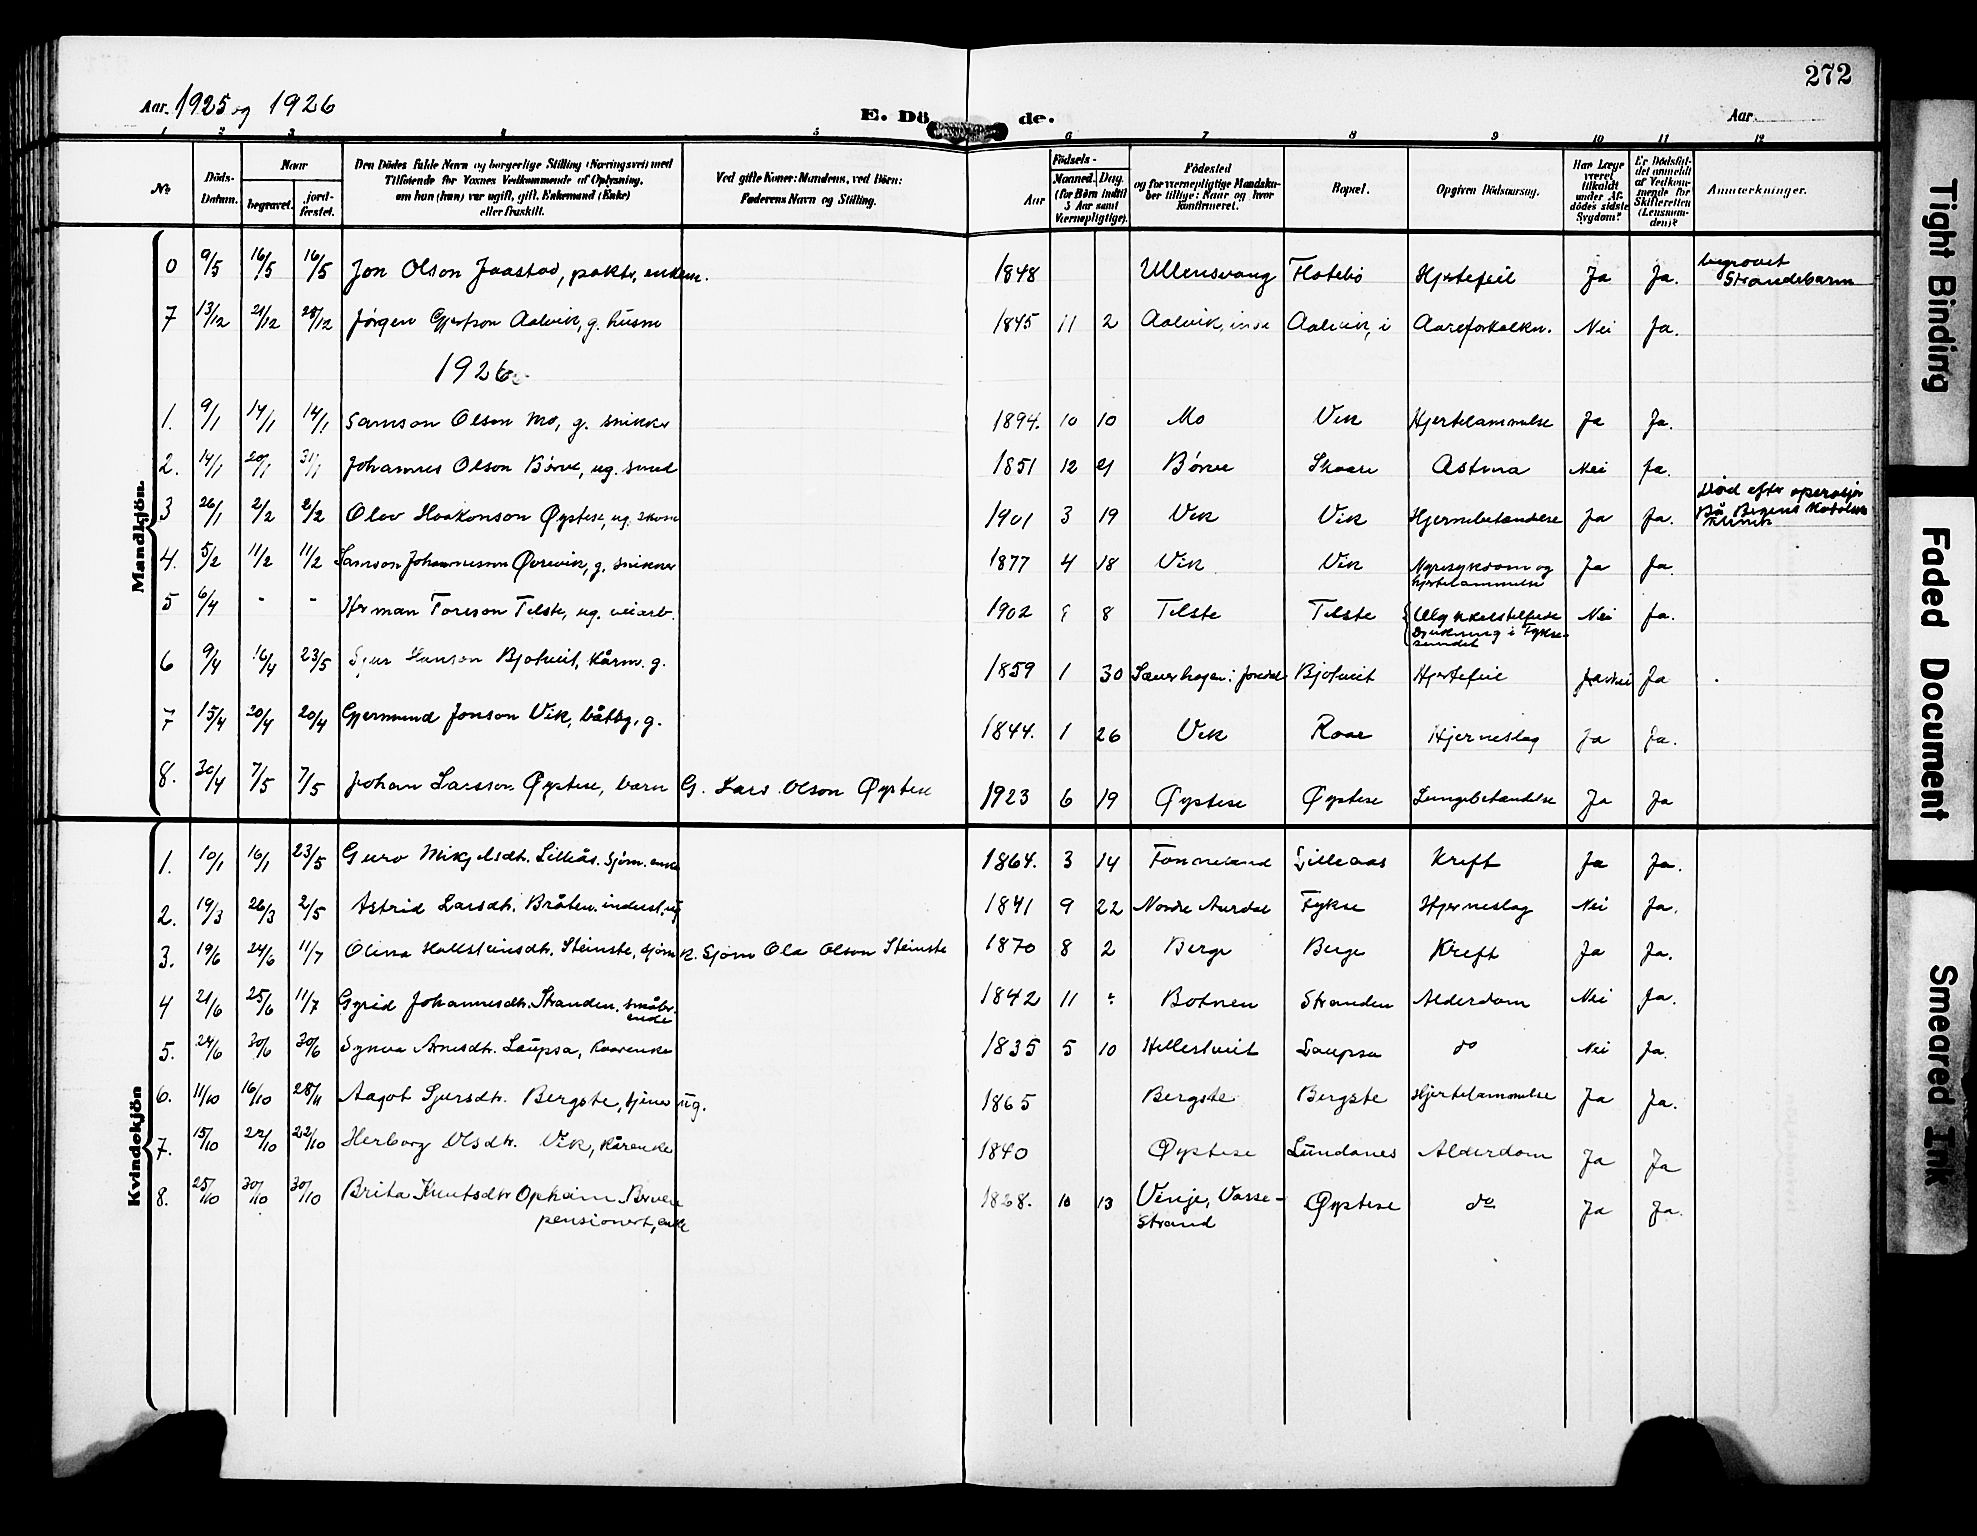 272
Aar. 1925 og 1926
E. Dö de.
Aar
1 2 3 4 5 6 7 8 9 10 11 12
No
Döds-Datum.
Naar
begravet. jord-festet.
Den Dödes fulde Navn og borgerlige Stilling (Næringsvei) med
Tilföiende for Voxnes Vedkommende af Oplysning,
om han (hun) var ugift, gift, Enkemand (Enke)
eller fraskilt.
Ved gifte Koner: Mandens, ved Börn:
Faderens Navn og Stilling.
Aar
Födsels-
Maaned. Dag.
(for Börn indtil
3 Aar samt
Værnepligtige).
Födested
og for værnepligtige Mandska-
ber tillige: Naar og hvor
konfirmeret.
Bopæl.
Opgiven Dödsaarsag.
Har Læge
været
tilkaldt
under Af-
dödes sidste
Sygdom?
Er Dödsfal-
det anmeldt
af Vedkom-
mende for
Skifteretten
(Lensman-
den)?
Anmærkninger.
Mandkjön.
0 9/5 16/5 16/5 Jon Olson Jaastad, pakts, enkem. 1848 Ullensvang Flotebø Hjertefeil Ja Ja. begravet Strandebarm
7 13/12 21/12 28/12 Jørgen Gjertson Aalvik, g. husm 1845 11 2 Aalvik, inse Aalvik, i Aareforkalkn. Nei Ja.
1926
1. 9/1 14/1 14/1 Samson Olson Mo, g. snikker 1894. 10 10 Mo Vik Hjertelammelse Ja Ja.
2. 14/1 20/1 31/1 Johannes Olson Børve, ug. smed 1851 12 21 Børve Skaare Astma Nei Ja.
3 26/1 2/2 2/2 Olav Haakonson Øystese, ug. skom 1901 3 19 Vik Vik Hjernebetændelse Ja Ja. Död efter operasjon på Bergens
4. 5/2 11/2 11/2 Samson Johannesson Øvrevik, g. snikker 1877 4 18 Vik Vik Nyresykdom og hjertelammelse Ja Ja.
5 6/4 - - Herman Toreson Telste, ug. veiarb. 1902 8 Telste Telste Ulykkelstilfelde Drukning i Fykse-sundet Nei Ja.
6 9/4 16/4 23/5 Sjur Hanson Bjotveit, kårm. g. 1859 1 30 Bjotveit Hjertefeil Ja
7 15/4 20/4 20/4 Gjermund Jonson Vik, båtbg. g. 1844. 1 26 Vik Roar Hjerneslag Ja Ja.
8. 30/4 7/5 7/5 Johan Larsson Øystese, barn G. Lars Olson Øystese 1923 6 19 Øystese Øystese Lungebetændelse Ja Ja
Kvindekjön
1. 10/1 16/1 23/5 Guro Mikjelsdtr. Lilleås. Sjøm. enke 1864. 3 14 Tønneland Lilleaas Kreft Ja Ja.
2. 19/3 26/3 2/5 Astrid Larsdtr. Bråten. inderst, ug 1841 9 22 Nordre Aurdal Fykse Hjerneslag Nei Ja.
3. 19/6 24/6 11/7 Olina Hallsteinsdtr. Steinstø, sjøm k. Sjøm Ola Olson Steinstø 1870 8 2 Berge Berge Kreft Ja Ja.
4 21/6 25/6 11/7 Gyrid Johannesdtr. Stranden. småbr. enke 1842 11 Botnen Stranden Alderdom Nei Ja.
5. 24/6 30/6 30/6 Synva Arnesdtr. Laupsa, kaarenke 1835 5 10 Hellestveit Laupsa do Nei Ja.
6. 11/10 16/10 28/11 Aagot Sjursdtr. Bergstø, tjener ug. 1865 Bergstø Bergstø Hjertelammelse Ja Ja.
7. 15/10 22/10 22/10 Herborg Olsdtr. Vik, kårenke 1840 Øystese Lundanes Alderdom Ja Ja
8. 25/10 30/10 30/10 Brita Knutsdtr Opheim pensionert, enke 1868. 10 13 Vinje, Vosse-strand Øystese do Ja Ja.
Tight Binding
Faded Document
Smeared Ink